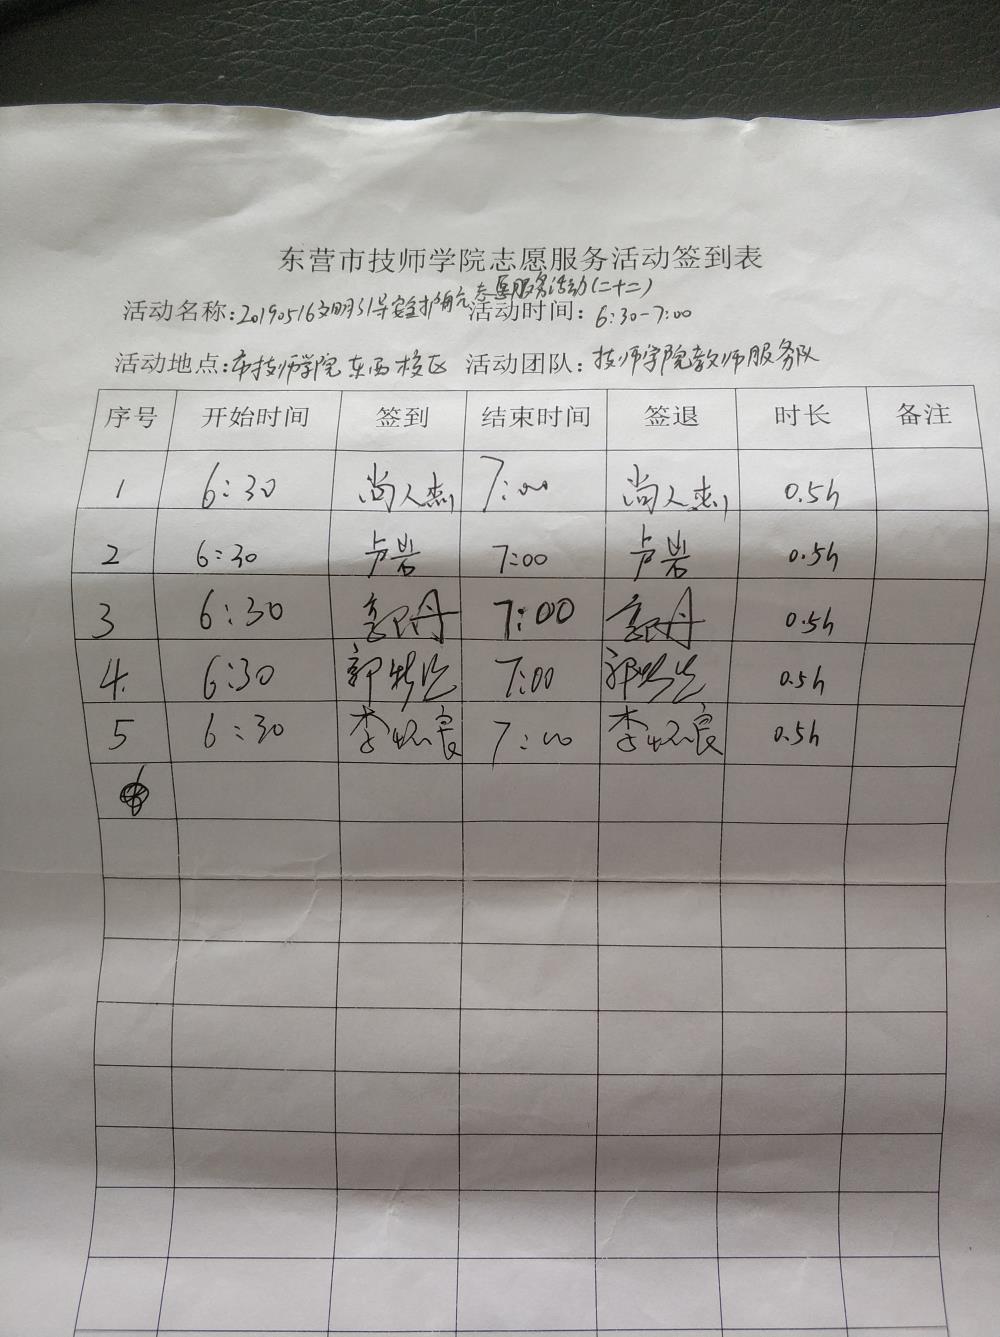 东营市技师学院志愿服务活动签到表
活动名称：20190516文明引导安全护航志愿服务活动(二十二) 活动时间：6:30-7:00
活动地点：市技师学院东西校区 活动团队：技师学院教师服务队
序号 开始时间 签到 结束时间 签退 时长 备注
1 6:30 尚人杰 7:00 尚人杰 0.5h
2 6:30 卢岩 7:00 卢岩 0.5h
3 6:30 7:00 0.5h
4. 6:30 郭 7:00 郭 0.5h
5 6:30 李怀良 7:00 李怀良 0.5h